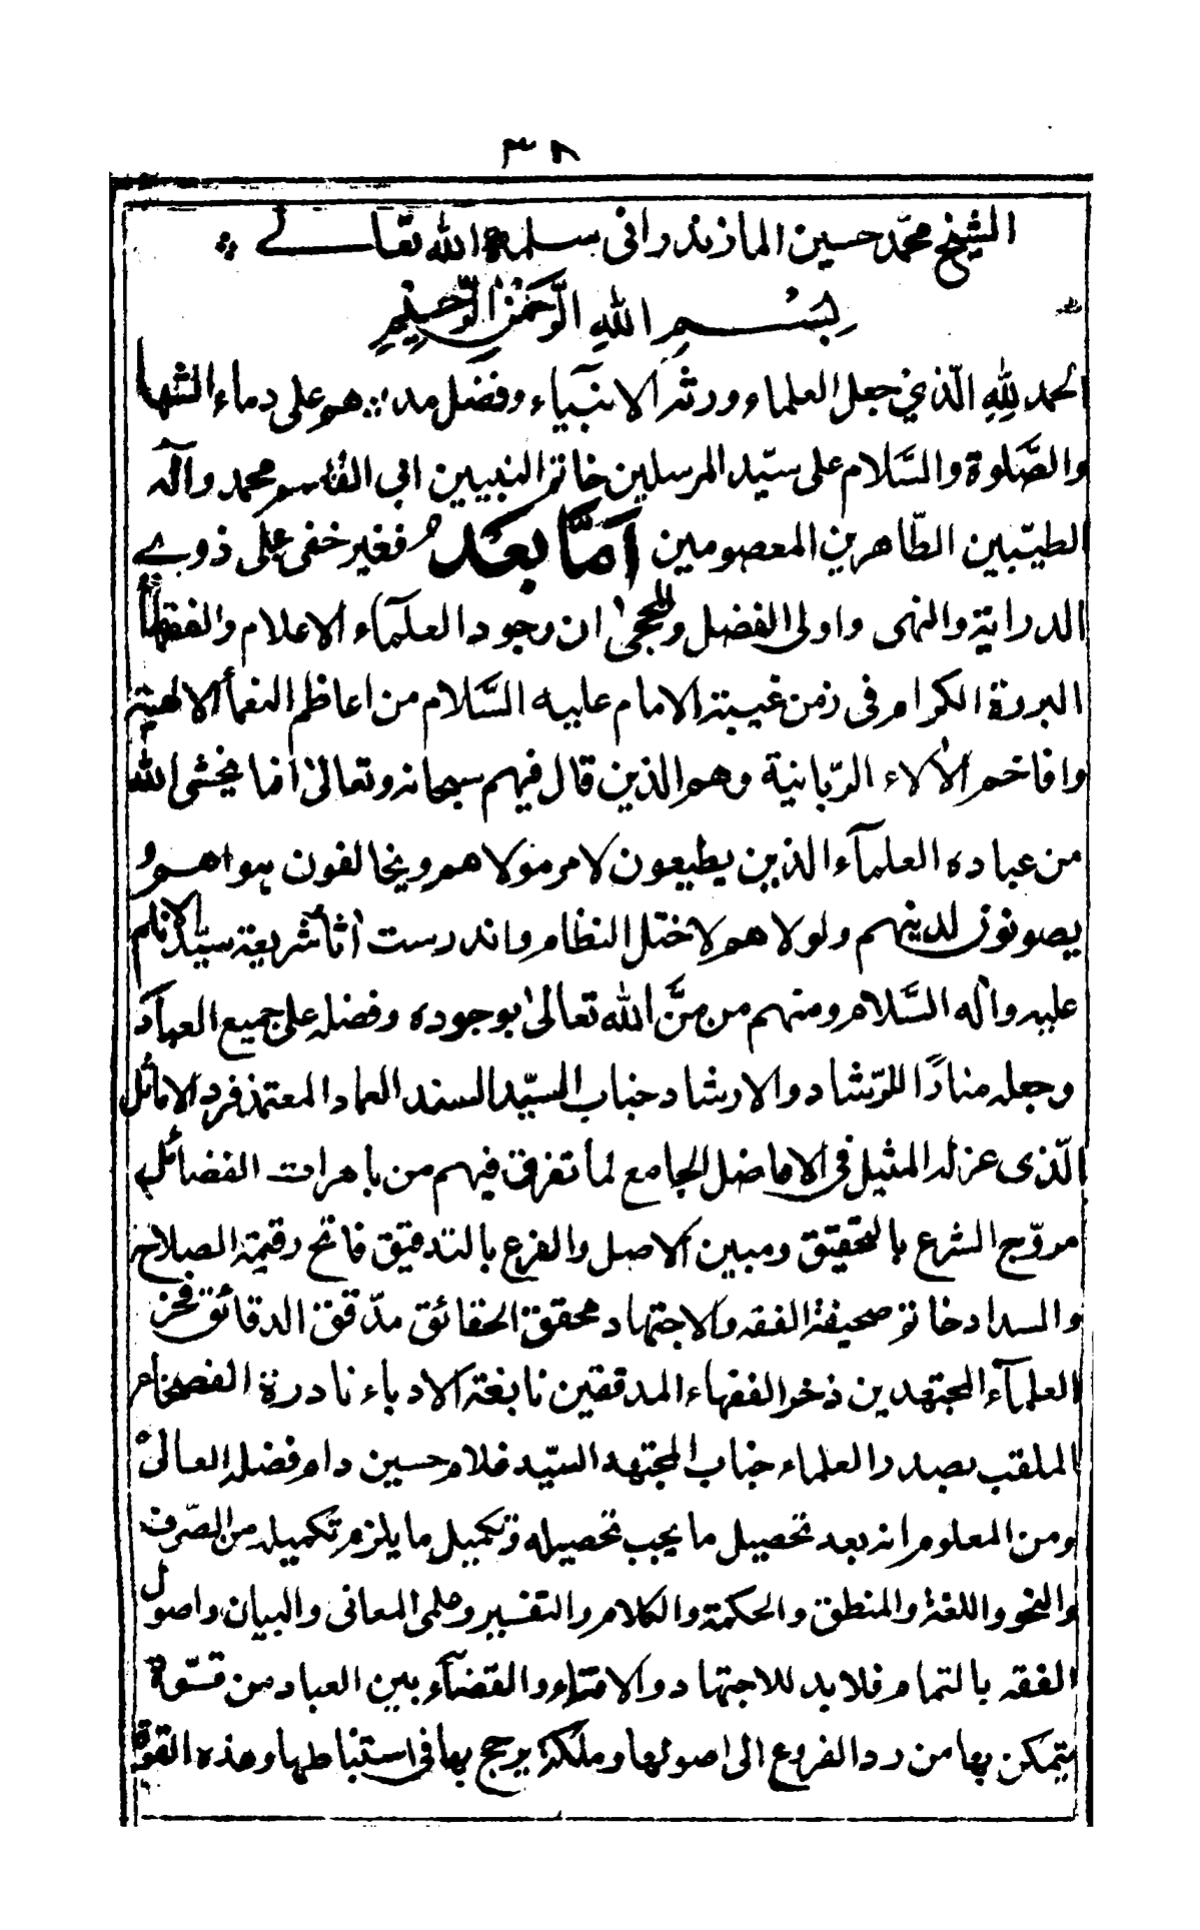 ٣٨
الشيخ محمّد حسين المازندرانى سلمه الله تعالے
بِسْمِ اللهِ الرَّحْمٰنِ الرَّحِيْمِ
الحمد لِلّٰهِ الّذيْ جعل العلماء ورثة الانبيآء وفضّل مدادهم على دماء الشهدا
والصَّلوة والسَّلام على سيّد المرسلين خاتم النبيين ابى القاسم محمد وآله
الطيّبين الطّاهرين المعصومين اَمَّا بَعْدُ فغير خفى على ذوے
الدراية والنهى واولى الفضل والحجىٰ ان وجود العلمآء الاعلام والفقهاء
البررة الكرام فى زمن غيبة الامام عليه السَّلام من اعاظم النعمآ الالهيّة
وافاخم الآلاء الرّبّانية وهم الذين قال فيهم سبحانه وتعالىٰ انما يخشى الله
من عباده العلمآء الذين يطيعون لامر مولاهم ويخالفون هواهم و
يصونون لدينهم ولولاهم لاختل النظام واندرست اٰثار شريعة سيّد الانام
عليه وآله السَّلام ومنهم من منَّ الله تعالىٰ بوجوده وفضله على جميع العباد
وجعله منارًا للرّشاد والارشاد جناب السيّد السند العماد المعتمد فرد الاماثل
الّذى عزله المثيل فى الافاضل الجامع لما تفرق فيهم من باهرات الفضائل
مروّج الشرع بالتحقيق ومبين الاصل والفرع بالتدقيق فاتح رقيمة الصلاح
والسداد خاتم صحيفة الفقه والاجتهاد محقق الحقائق مدّقق الدقائق فخر
العلمآء المجتهدين ذخر الفقهاء المدققين نابغة الادباء نادرة الفصحاء
الملقب بصدر العلماء جناب المجتهد السيّد غلام حسين دام فضله العالىٰ
ومن المعلوم انه بعد تحصيل ما يجب تحصيله وتكميل ما يلزم تكميله من الصّرف
والنحو واللغة والمنطق والحكمة والكلام والتفسير وعلمى المعانى والبيان واصول
الفقه بالتمام فلا بد للاجتهاد والافتاء والقضآء بين العباد من قسّوة
يتمكن بها من رد الفروع الى اصولها وملكة يرجح بها فى استنباطها وهذه القوة